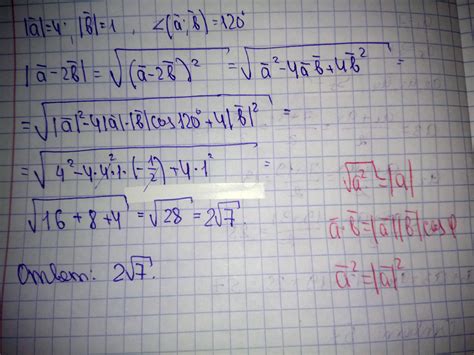 |a̅|=4; |b̅|=1, ∠(a̅;b̅)=120°
|a̅-2b̅| = √(a̅-2b̅)² = √a̅²-4a̅b̅+4b̅² =
= √|a̅|²-4|a̅|·|b̅|cos120°+4|b̅|² =
= √4²-4·4²·1·(-1/2)+4·1² =
√16+8+4 = √28 = 2√7
Ответ: 2√7.
√a̅² = |a̅|
a̅·b̅=|a̅||b̅|cosφ
a̅²=|a̅|²